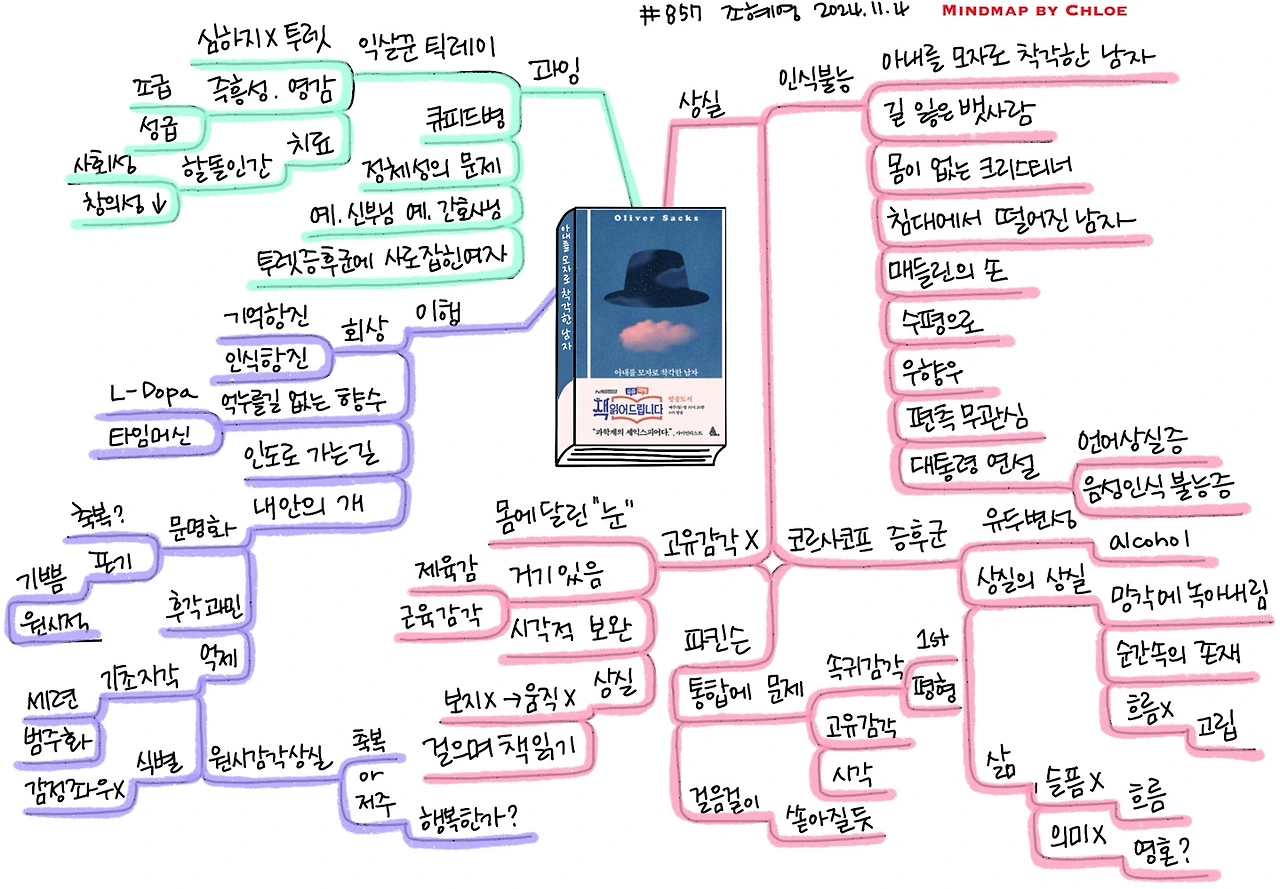 #857 조혜영 2024.11.4
MINDMAP BY CHLOE
상실
인식불능
아내를 모자로 착각한 남자
길 잃은 뱃사람
몸이 없는 크리스티너
침대에서 떨어진 남자
매들린의 손
수평으로
우향우
편측 무관심
대통령 연설
언어상실증
음성인식 불능증
코르사코프 증후군
유두변성
alcohol
상실의 상실
망각에 녹아내림
순간속의 존재
흐름X
고립
삶
슬픔X
흐름
의미X
영혼?
파킨슨
통합에 문제
속귀감각
1st
평형
고유감각
시각
걸음걸이
쏟아질듯
고유감각 X
몸에 달린 "눈"
거기 있음
제육감
근육감각
시각적 보완
상실
보지X → 움직X
걸으며 책읽기
이행
회상
기억항진
인식항진
억누를길 없는 향수
L-Dopa
타임머신
인도로 가는길
내안의 개
문명화
축복?
포기
기쁨
원시적
후각과민
억제
기초자각
세련
범주화
식별
감정좌우X
원시감각상실
축복
아
저주
행복한가?
과잉
익살꾼 틱레이
심하지X 투렛
즉흥성. 영감
조급
성급
치료
할돌인간
사회성
창의성 ↓
큐피드병
정체성의 문제
예. 신부님 예. 간호사님
투렛증후군에 사로잡힌여자
Oliver Sacks
아내를 모자로 착각한 남자
아내를 모자로 착각한 남자
책 읽어드립니다
방송도서
"과학계의 셰익스피어다."